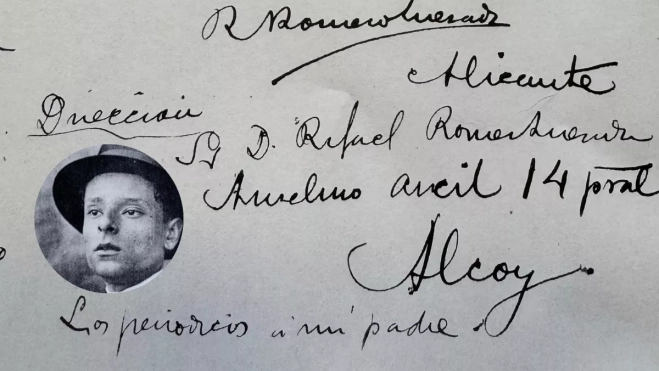 R Romero
Alicante
Dirección
Sr D. Rafael Romero
Anselmo aracil 14 pral
Alcoy.
Los periodicos á mi padre.